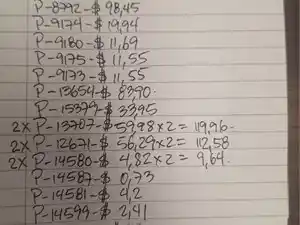 P-8792-$ 98,45
P-9174-$ 19,94
P-9180-$ 11,69
P-9175-$ 11,55
P-9173-$ 11,55
P-13654-$ 83,90.
P-15379-$ 33,95
2X P-13707-$ 59,98 x 2 = 119,96.
2X P-12671-$ 56,29 x 2 = 112,58
2X P-14580-$ 4,82 x 2 = 9,64.
P-14587-$ 0,73
P-14581-$ 4,2
P-14599-$ 2,41